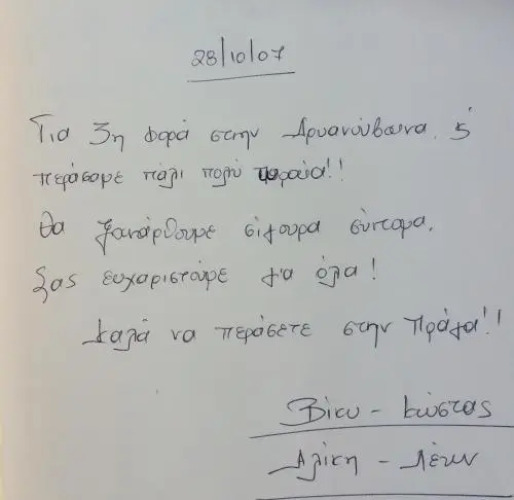 28/10/07
Για 3η φορά στην Αρυανούβαινα, ς'
περάσαμε πάλι πολύ ωραία!!
Θα ξανάρθουμε σίγουρα σύντομα.
Σας ευχαριστούμε για όλα!
Καλά να περάσετε στην Πράγα!!
Βίκυ - Κώστας
Αλίκη -